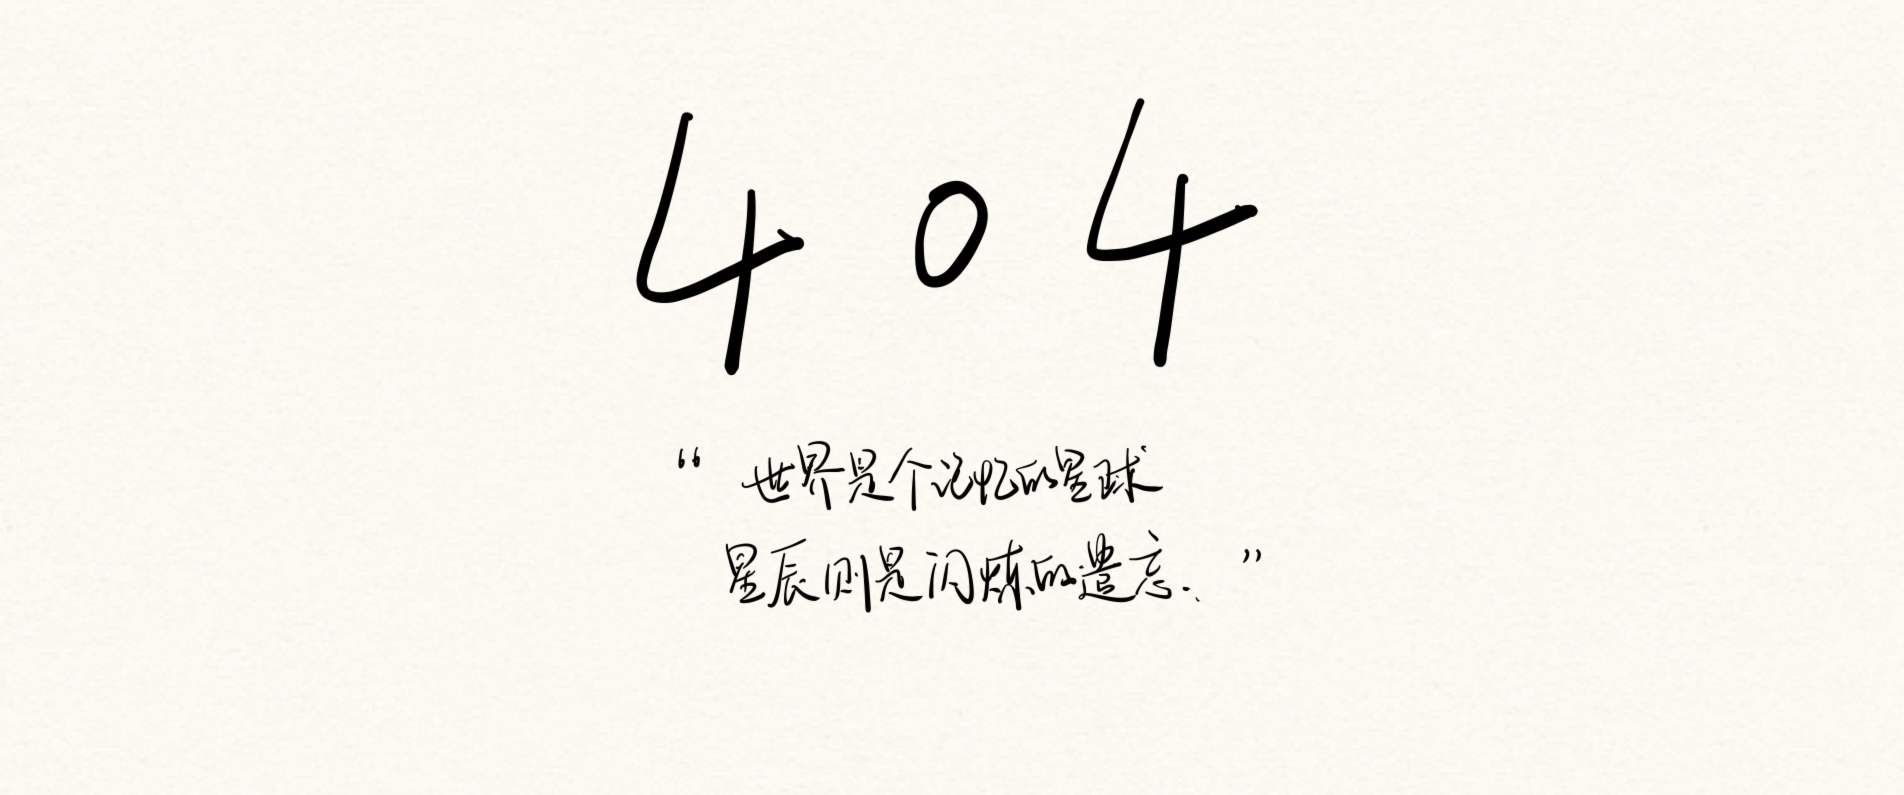 404
“ 世界是个记忆的星球
星辰则是闪烁的遗忘. ”